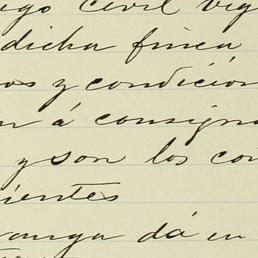 igo Civil vig
dicha finca
os y condicion
n á consigna
y son los con
ientes
ranga dá en